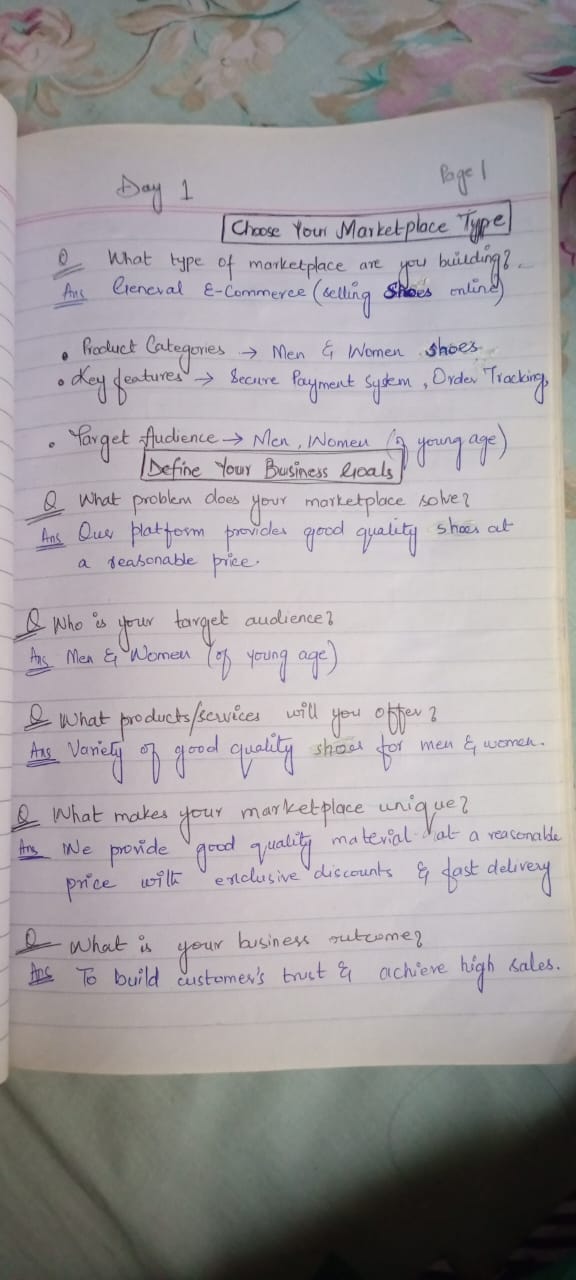 Day 1
Page 1
Choose Your Marketplace Type
Q What type of marketplace are you building?
Ans General E-Commerce (selling shoes online)
• Product Categories → Men & Women shoes.
• Key features → Secure Payment System, Order Tracking,
• Target Audience → Men, Women (of young age)
Define Your Business Goals
Q What problem does your marketplace solve?
Ans Our platform provides good quality shoes at
a reasonable price.
Q Who is your target audience?
Ans Men & Women (of young age)
Q What products/services will you offer?
Ans Variety of good quality shoes for men & women.
Q What makes your marketplace unique?
Ans We provide good quality material at a reasonable
price with exclusive discounts & fast delivery
Q What is your business outcome?
Ans To build customer's trust & achieve high sales.